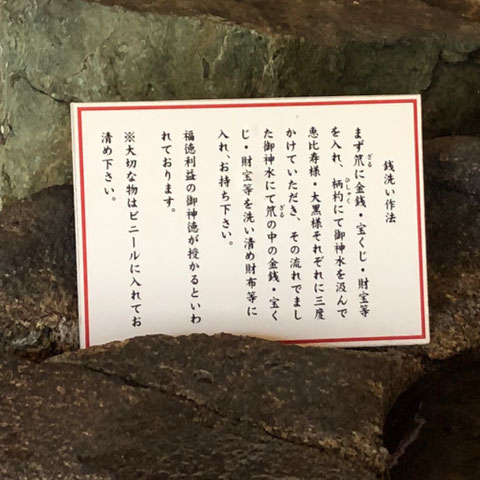 銭洗い作法
まず笊に金銭・宝くじ・財宝等
を入れ、柄杓にて御神水を汲んで
恵比寿様・大黒様それぞれに三度
かけていただき、その流れでまし
た御神水にて笊の中の金銭・宝く
じ・財宝等を洗い清め財布等に
入れ、お持ち下さい。
福徳利益の御神徳が授かるといわ
れております。
※大切な物はビニールに入れてお
清め下さい。